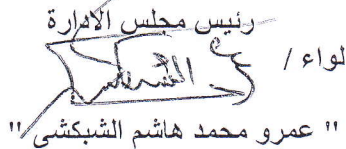 رئيس مجلس الادارة
لواء /
" عمرو محمد هاشم الشبكشى "